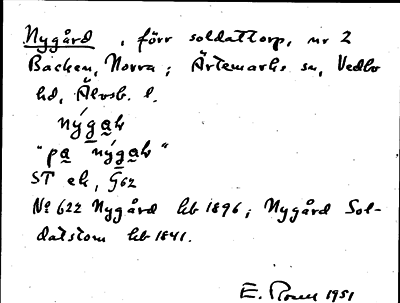 Nygård, förr soldattorp, nr 2
Backen, Norra; Ärtemarks sn, Vedbo
hd, Älvsb. l.
nýgak
"pa nýgak"
ST ek, G62
No 622 Nygård hb 1896; Nygård Sol-
datstom hb 1841.
E. 1951